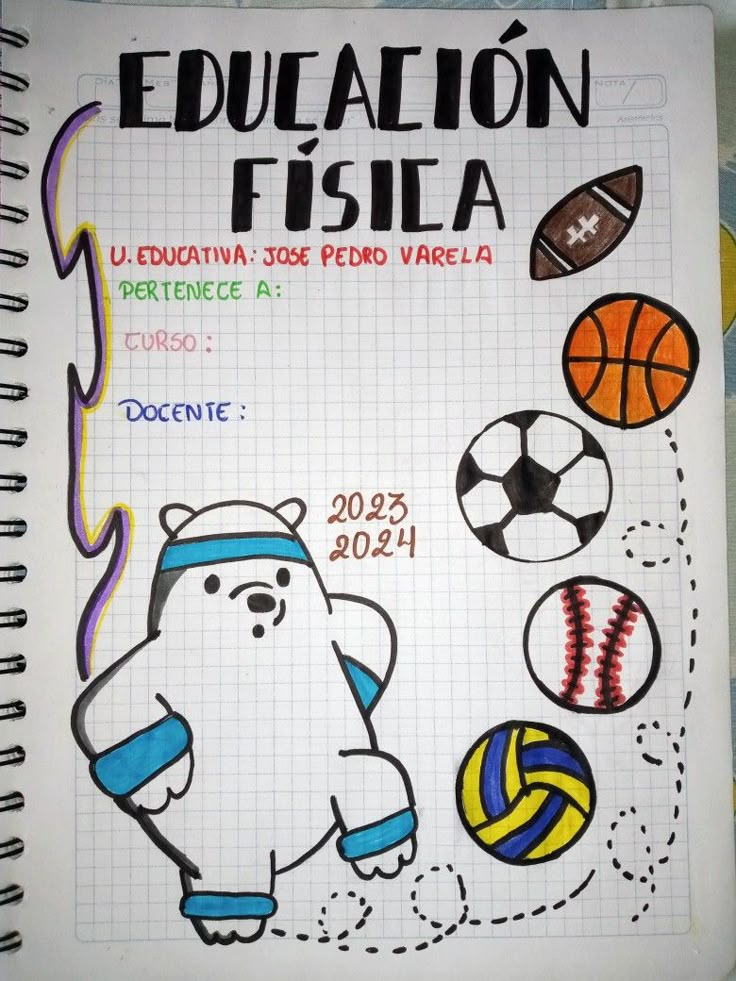 EDUCACIÓN
FÍSICA
U. EDUCATIVA: JOSE PEDRO VARELA
PERTENECE A:
CURSO:
DOCENTE:
2023
2024
NOTA